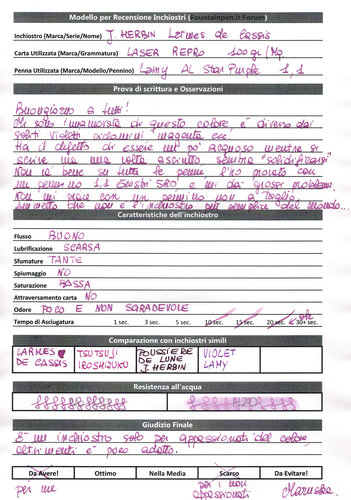 Modello per Recensione Inchiostri (Fountainpen.it Forum)
Inchiostro (Marca/Serie/Nome) J. HERBIN Larmes de Cassis
Carta Utilizzata (Marca/Grammatura) LASER REPRO 100 gr/Mq
Penna Utilizzata (Marca/Modello/Pennino) Lamy AL Star Purple 1,1
Prova di scrittura e Osservazioni
Buongiorno a tutti!
Mi sono innamorata di questo colore, è diverso dai
soliti violetti ciclamini magenta ecc.
Ha il difetto di essere un po' acquoso mentre si
scrive ma una volta asciutto sembra "solidificarsi"
Non va bene su tutte le penne l'ho provato con
un pennino 1,1 e mi dà grossi problemi.
Non mi piace con un pennino non a taglio,
ammetto che non è l'inchiostro più semplice del mondo...
Caratteristiche dell'inchiostro
Flusso BUONO
Lubrificazione SCARSA
Sfumature TANTE
Spiumaggio NO
Saturazione BASSA
Attraversamento carta NO
Odore POCO E NON SGRADEVOLE
Tempo di Asciugatura 1 sec. 3 sec. 5 sec. 10 sec. 15 sec. 20 sec. 30+ sec.
Comparazione con inchiostri simili
LARMES DE CASSIS TSUTSUJI IROSHIZUKU POUSSIERE DE LUNE J. HERBIN VIOLET LAMY
Resistenza all'acqua
Giudizio Finale
È un inchiostro solo per appassionati del colore,
altrimenti è poco adatto.
Da Avere! Ottimo Nella Media Scarso Da Evitare!
per me per i non appassionati